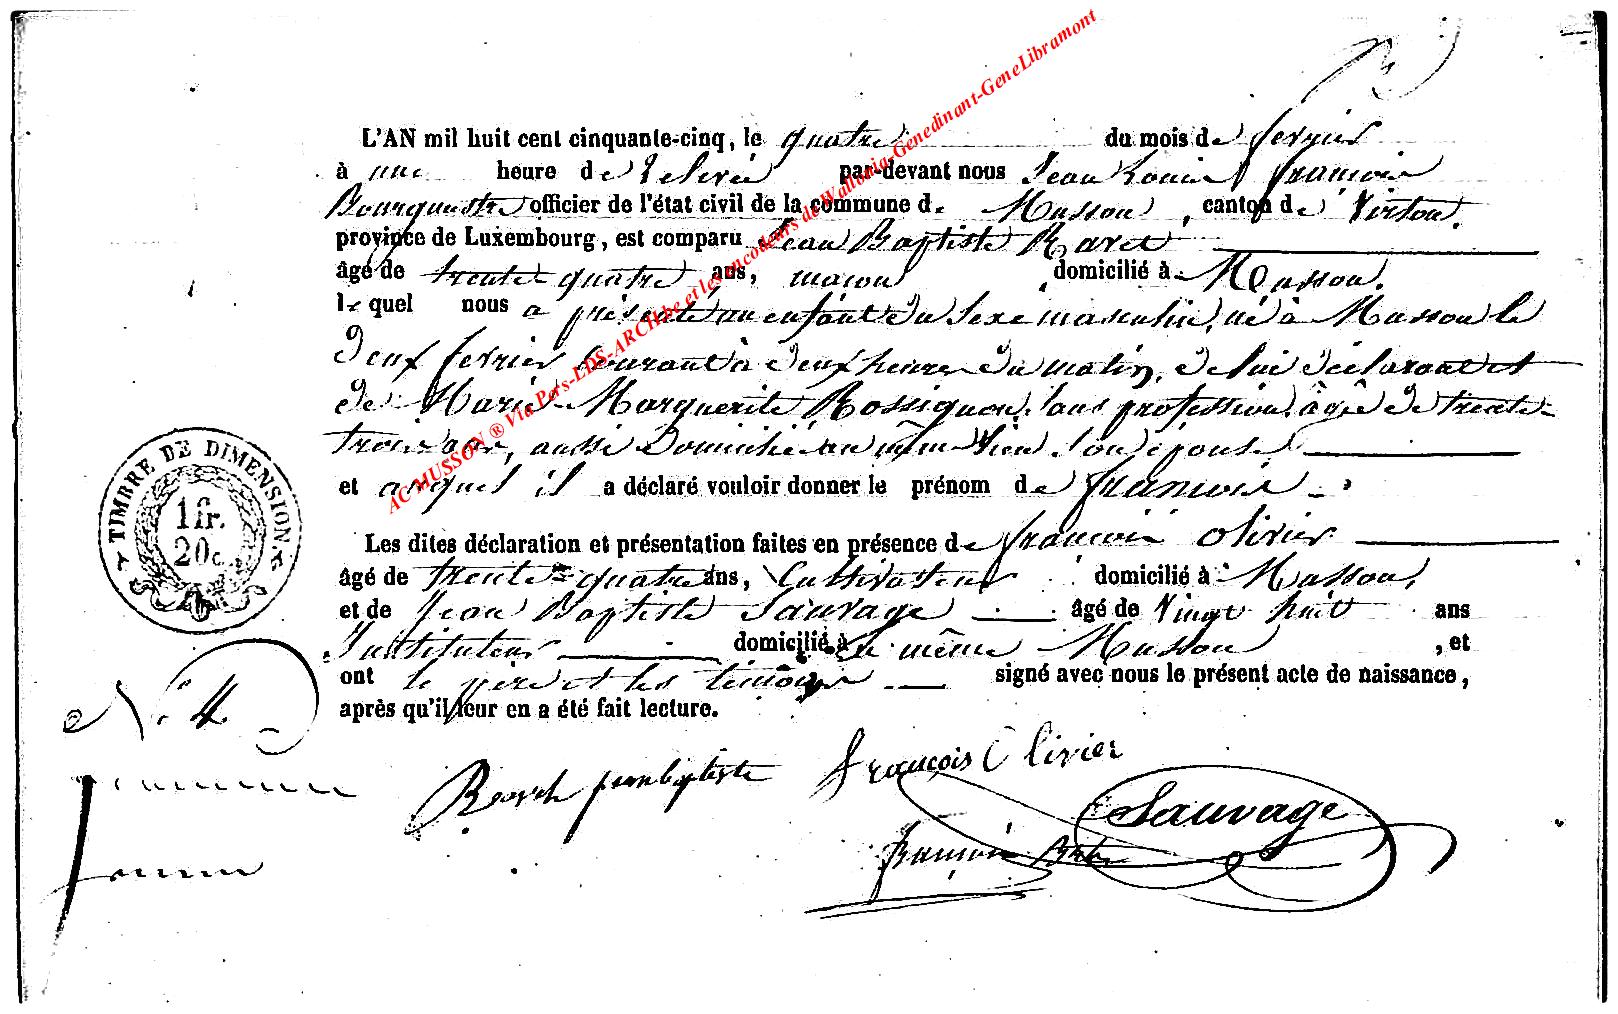 L'AN mil huit cent cinquante-cinq, le quatre du mois de fevrier
à une heure de relevée par-devant nous Jean Louis François
Bourguemestre officier de l'état civil de la commune de Musson, canton de Virton,
province de Luxembourg, est comparu Jean Baptiste
âgé de trente-quatre ans, maçon domicilié à Musson,
lequel nous a présenté un enfant du sexe masculin, né à Musson le
deux fevrier courant à deux heures du matin, de lui déclarant et
de Marie Marguerite Rossignon, sans profession, âgée de trente-
trois ans, aussi domiciliée au même lieu son épouse
et auquel il a déclaré vouloir donner le prénom de françois
Les dites déclaration et présentation faites en présence de françois Olivier
âgé de trente-quatre ans, Cultivateur domicilié à Musson,
et de Jean Baptiste Sauvage âgé de Vingt huit ans
Instituteur domicilié à même Musson, et
ont le père et les témoins signé avec nous le présent acte de naissance,
après qu'il leur en a été fait lecture.
TIMBRE DE DIMENSION.
1 fr.
20 c.
N° 4
françois Olivier
Sauvage
AC MUSSON ® Via Pers-LDS-ARCH.be et les encodeurs de Wallonia-Genedinant-GeneLibramont